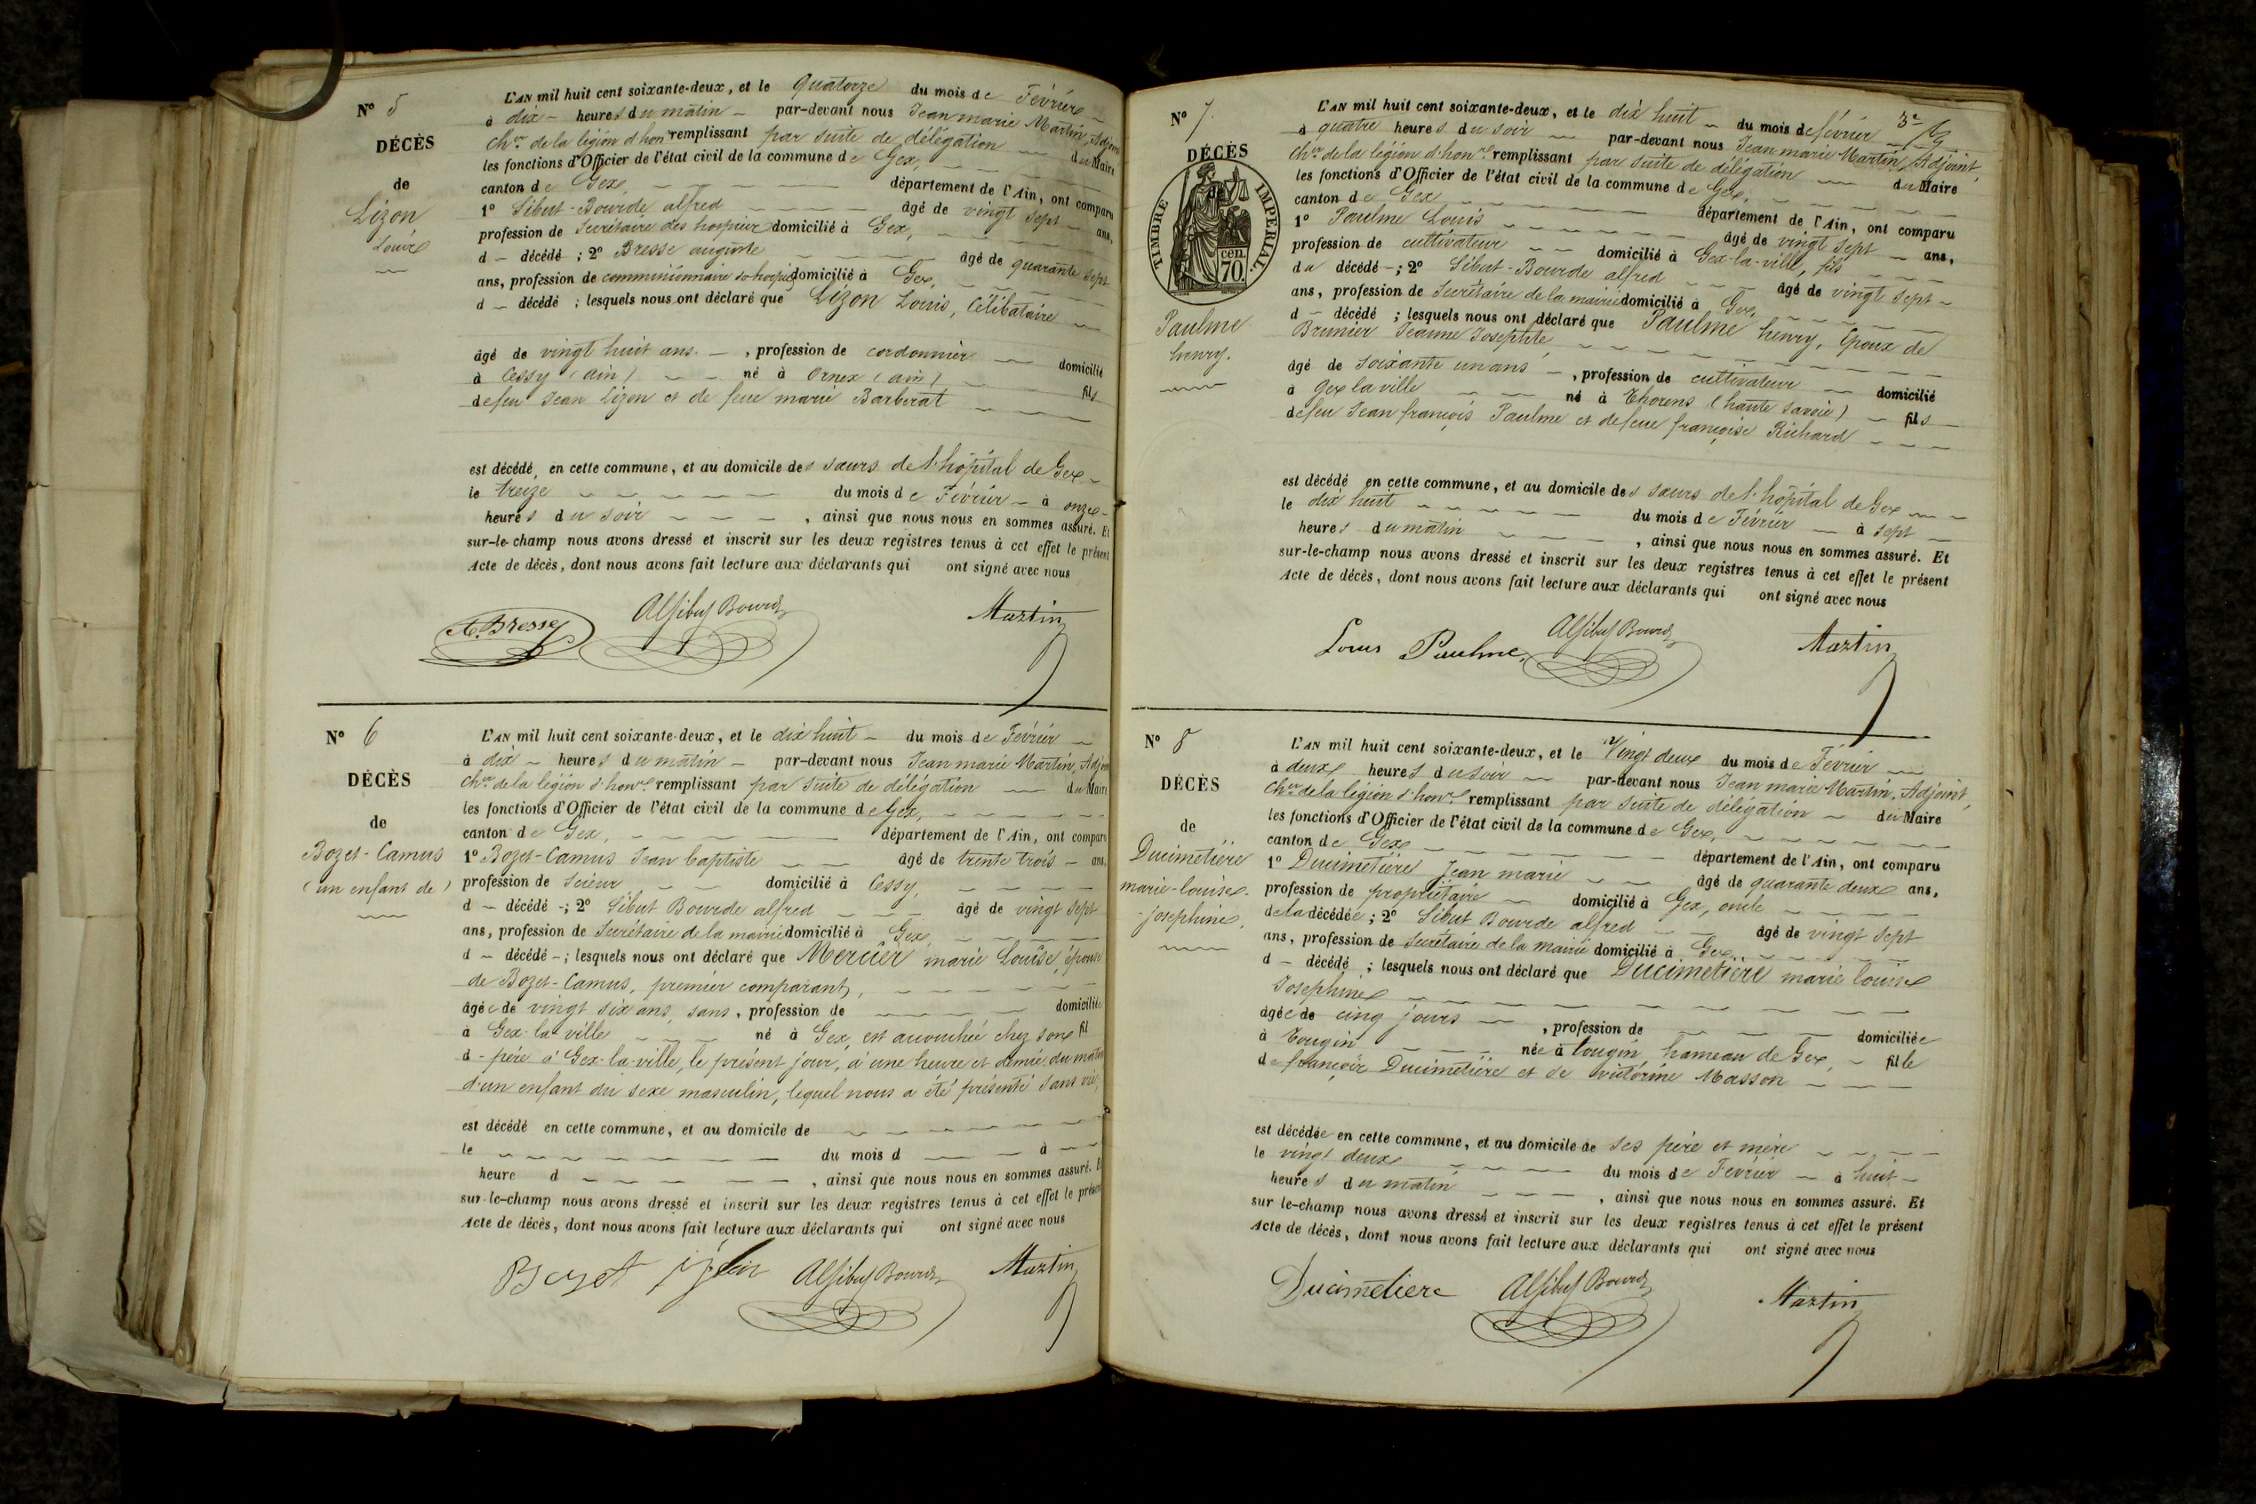 N° 5
DÉCÈS
de
Lizon
Louis
L'AN mil huit cent soixante-deux, et le quatorze du mois de Février
à dix heures du matin par-devant nous Jean marie Martin, Adjoint
Ch.er de la légion d'hon.r remplissant par suite de délégation du Maire
les fonctions d'Officier de l'état civil de la commune de Gex,
canton de Gex, département de l'Ain, ont comparu
1° Sibut-Bourde alfred âgé de vingt sept ans,
profession de Secrétaire des hospices domicilié à Gex,
d décédé ; 2° Bresse auguste âgé de quarante sept
ans, profession de commissionnaire domicilié à Gex,
d décédé ; lesquels nous ont déclaré que Lizon Louis, Célibataire
âgé de vingt huit ans , profession de cordonnier domicilié
à Cessy (ain) né à Ornex (ain) fils
de feu Jean Lizon et de feue marie Barberat
est décédé en cette commune, et au domicile des sœurs de l'hôpital de Gex
le treize du mois de Février à onze
heures du soir , ainsi que nous nous en sommes assuré. Et
sur-le-champ nous avons dressé et inscrit sur les deux registres tenus à cet effet le présent
Acte de décès, dont nous avons fait lecture aux déclarants qui ont signé avec nous
A. Bresse Al Sibut Bourde Martin
N° 6
DÉCÈS
de
Bozet-Camus
(un enfant de)
L'AN mil huit cent soixante-deux, et le dix huit du mois de Février
à dix heures du matin par-devant nous Jean marie Martin, Adjoint
Ch.er de la légion d'hon.r remplissant par suite de délégation du Maire
les fonctions d'Officier de l'état civil de la commune de Gex,
canton de Gex, département de l'Ain, ont comparu
1° Bozet-Camus Jean baptiste âgé de trente trois ans,
profession de Scieur domicilié à Cessy,
d décédé ; 2° Sibut Bourde alfred âgé de vingt sept
ans, profession de Secrétaire de la mairie domicilié à Gex,
d décédé ; lesquels nous ont déclaré que Mercier marie Louise, épouse
de Bozet-Camus, premier comparant,
âgée de vingt six ans, sans , profession de domiciliée
à Gex-la-ville né à Gex, est accouchée chez son fil
d père à Gex-la-ville, le présent jour, à une heure et demie du matin
d'un enfant du sexe masculin, lequel nous a été présenté sans vie,
est décédé en cette commune, et au domicile de
le du mois d à
heure d , ainsi que nous nous en sommes assuré. Et
sur-le-champ nous avons dressé et inscrit sur les deux registres tenus à cet effet le présent
Acte de décès, dont nous avons fait lecture aux déclarants qui ont signé avec nous
Bozet Al Sibut Bourde Martin
N° 7
DÉCÈS
TIMBRE IMPERIAL.
70 cen.
Paulme
henry.
L'AN mil huit cent soixante-deux, et le dix huit du mois de février
à quatre heures du soir par-devant nous Jean marie Martin, Adjoint,
Ch.er de la légion d'hon.r remplissant par suite de délégation du Maire
les fonctions d'Officier de l'état civil de la commune de Gex,
canton de Gex département de l'Ain, ont comparu
1° Paulme Louis âgé de vingt sept ans,
profession de cultivateur domicilié à Gex-la-ville, fils
du décédé ; 2° Sibut-Bourde alfred âgé de vingt sept
ans, profession de Secrétaire de la mairie domicilié à Gex,
d décédé ; lesquels nous ont déclaré que Paulme henry, Epoux de
Brunier Jeanne Josephte,
âgé de soixante un ans , profession de cultivateur domicilié
à Gex la ville né à Thorens (haute savoie) fils
de feu Jean françois Paulme et de feue françoise Richard
est décédé en cette commune, et au domicile des sœurs de l'hôpital de Gex
le dix huit du mois de Février à sept
heures du matin , ainsi que nous nous en sommes assuré. Et
sur-le-champ nous avons dressé et inscrit sur les deux registres tenus à cet effet le présent
Acte de décès, dont nous avons fait lecture aux déclarants qui ont signé avec nous
Louis Paulme Al Sibut Bourde Martin
N° 8
DÉCÈS
de
Ducimetière
marie-louise
-josephine.
L'AN mil huit cent soixante-deux, et le Vingt deux du mois de Février
à deux heures du soir par-devant nous Jean marie Martin, Adjoint,
Ch.er de la légion d'hon.r remplissant par suite de délégation du Maire
les fonctions d'Officier de l'état civil de la commune de Gex,
canton de Gex département de l'Ain, ont comparu
1° Ducimetière Jean marie âgé de quarante deux ans,
profession de propriétaire domicilié à Gex, oncle
de la décédée ; 2° Sibut Bourde alfred âgé de vingt sept
ans, profession de Secrétaire de la mairie domicilié à Gex,
d décédé ; lesquels nous ont déclaré que Ducimetière marie louise
Josephine
âgée de cinq jours , profession de domiciliée
à Tougin née à Tougin, hameau de Gex, fille
de françois Ducimetière et de victorine Masson
est décédée en cette commune, et au domicile de ses père et mère
le vingt deux du mois de Février à huit
heures du matin , ainsi que nous nous en sommes assuré. Et
sur le-champ nous avons dressé et inscrit sur les deux registres tenus à cet effet le présent
Acte de décès, dont nous avons fait lecture aux déclarants qui ont signé avec nous
Ducimetiere Al Sibut Bourde Martin